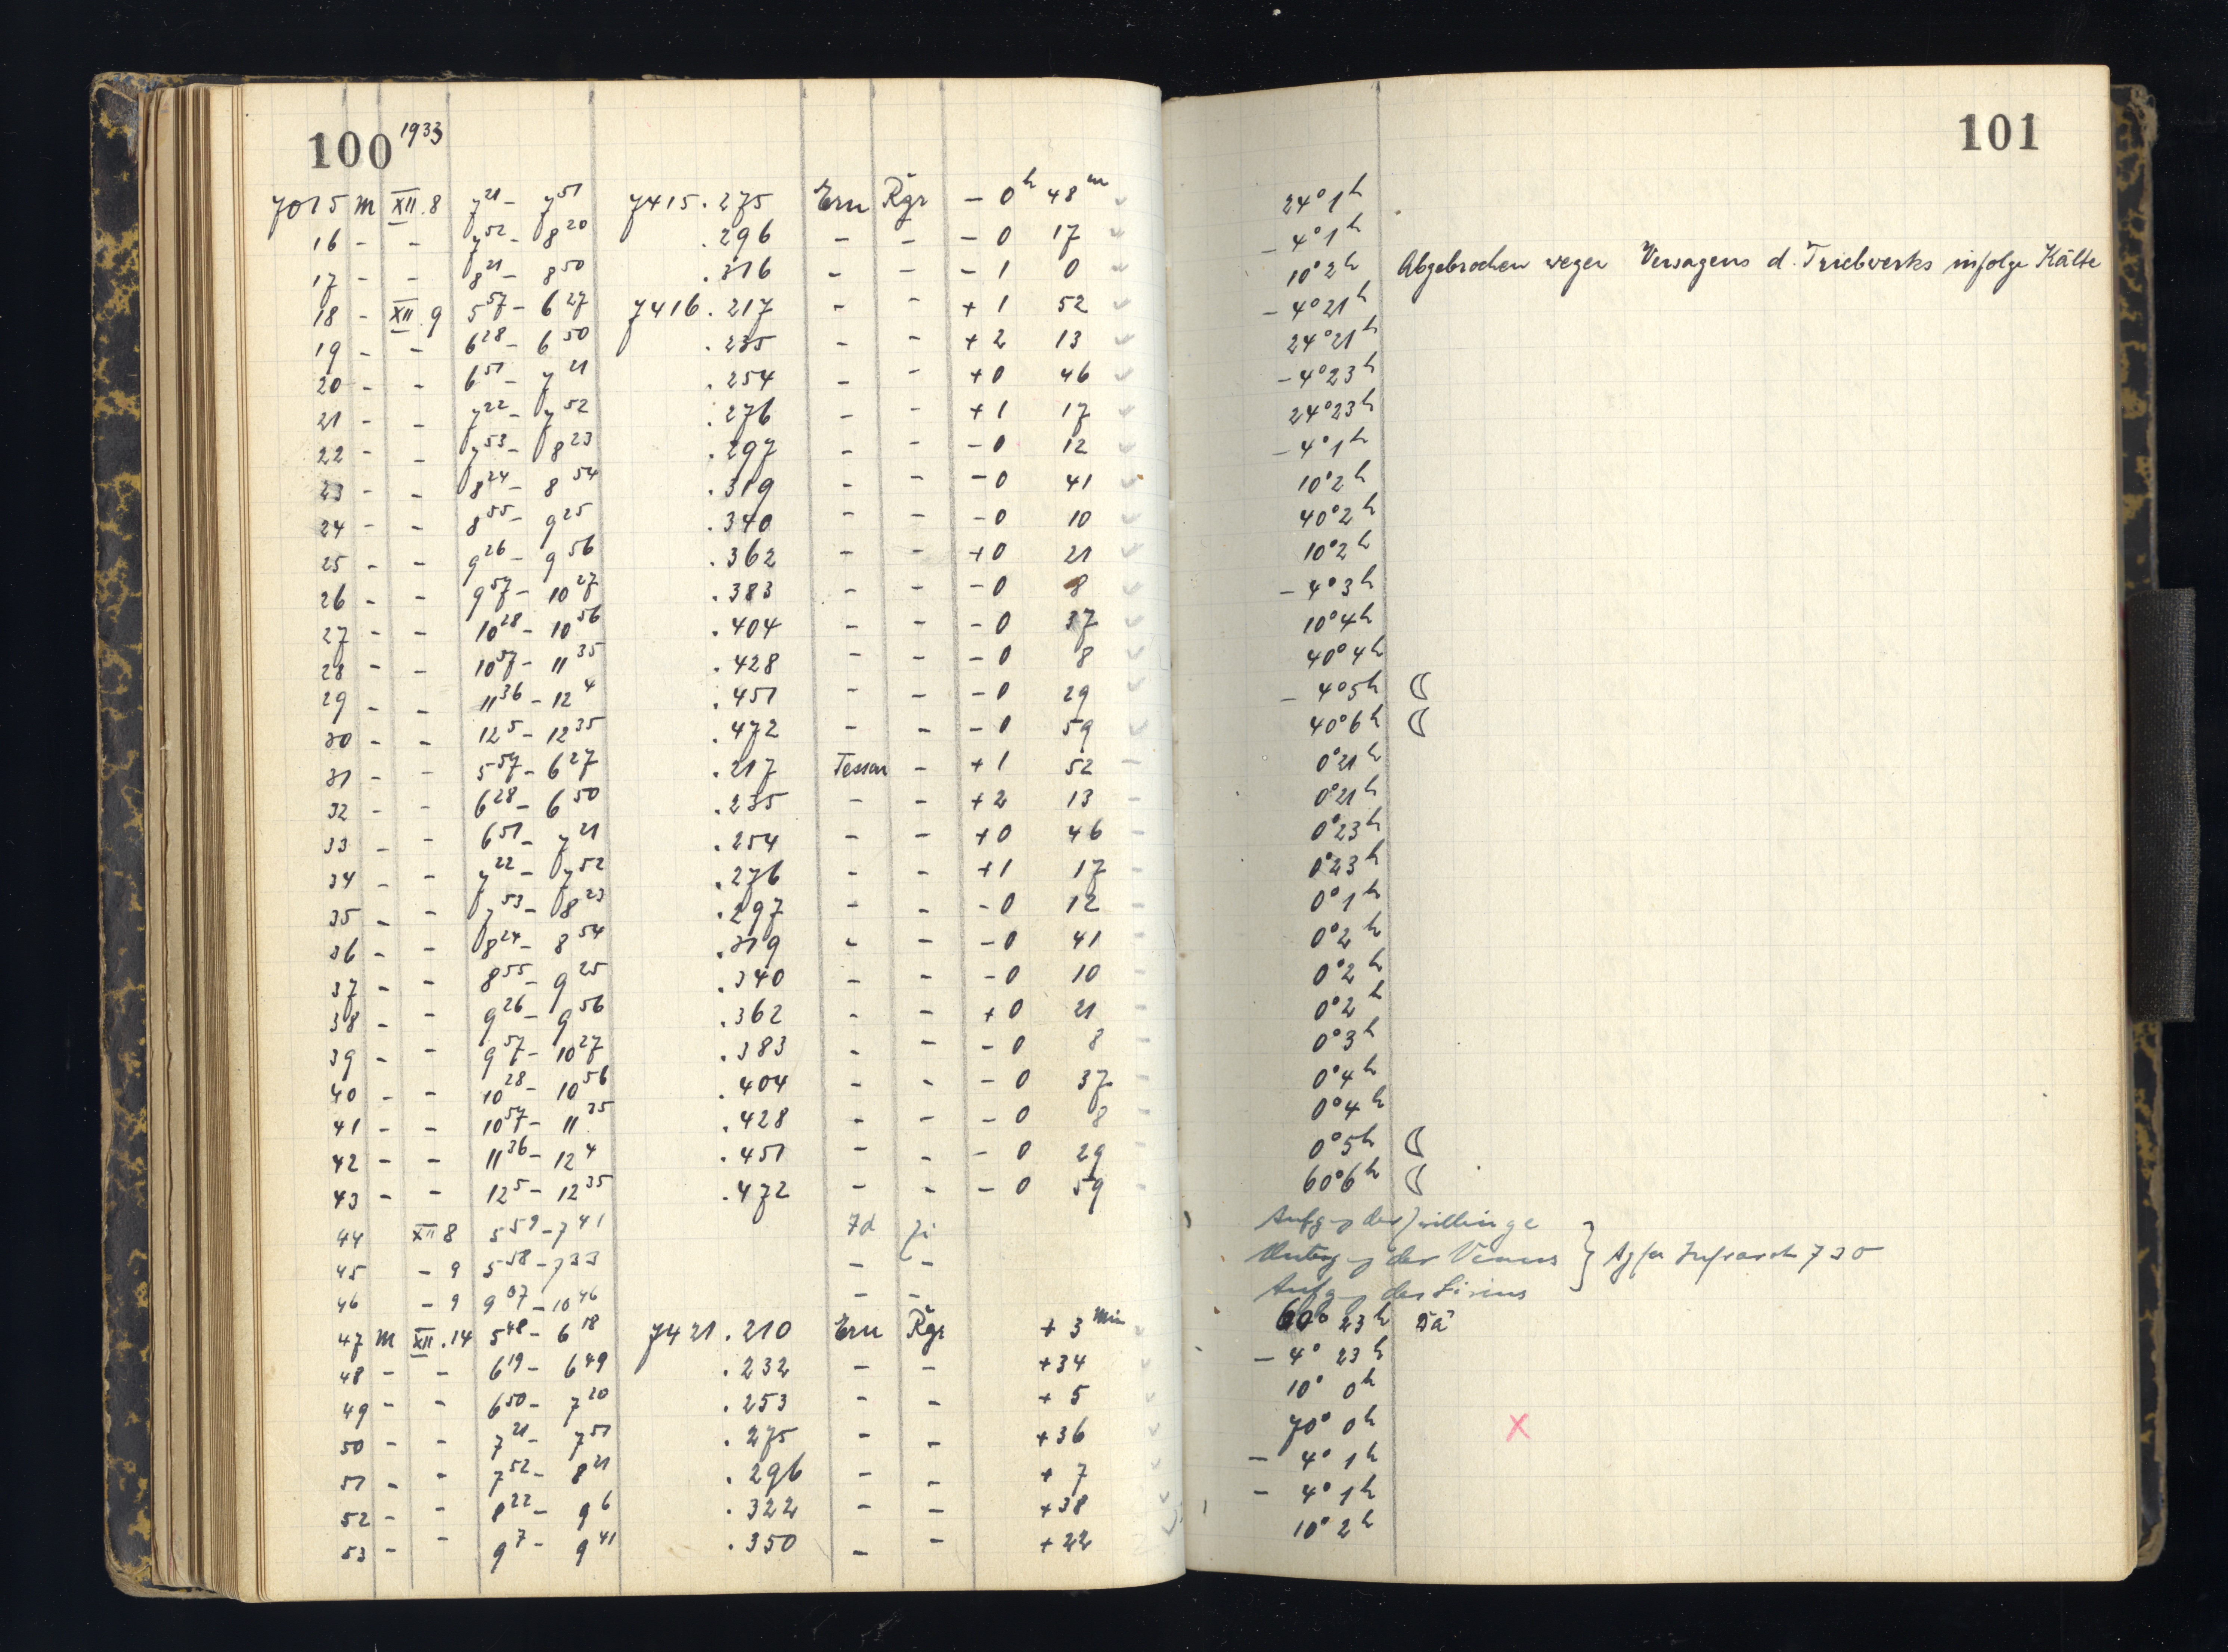 100 1933
101
7015 M XII.8 7 21 - 7 51 7415.275 Ern Rgr - 0 h 48 m 24° 1 h
16 - - 7 52 - 8 20 .296 - - - 0 17 - 4° 1 h
17 - - 8 21 - 8 50 .316 - - - 1 0 10° 2 h Abgebrochen wegen Versagens d. Triebwerks infolge Kälte
18 - XII.9 5 57 - 6 27 7416.217 - - + 1 52 - 4° 21 h
19 - - 6 28 - 6 50 .235 - - + 2 13 24° 21 h
20 - - 6 51 - 7 21 .254 - - + 0 46 - 4° 23 h
21 - - 7 22 - 7 52 .276 - - + 1 17 24° 23 h
22 - - 7 53 - 8 23 .297 - - - 0 12 - 4° 1 h
23 - - 8 24 - 8 54 .319 - - - 0 41 10° 2 h
24 - - 8 55 - 9 25 .340 - - - 0 10 40° 2 h
25 - - 9 26 - 9 56 .362 - - + 0 21 10° 2 h
26 - - 9 57 - 10 27 .383 - - - 0 8 - 4° 3 h
27 - - 10 28 - 10 56 .404 - - - 0 37 10° 4 h
28 - - 10 57 - 11 35 .428 - - - 0 8 40° 4 h
29 - - 11 36 - 12 4 .451 - - - 0 29 - 4° 5 h ☾
30 - - 12 5 - 12 35 .472 - - - 0 59 40° 6 h ☾
31 - - 5 57 - 6 27 .217 Tessar - + 1 52 - 0° 21 h
32 - - 6 28 - 6 50 .235 - - + 2 13 - 0° 21 h
33 - - 6 51 - 7 21 .254 - - + 0 46 - 0° 23 h
34 - - 7 22 - 7 52 .276 - - + 1 17 - 0° 23 h
35 - - 7 53 - 8 23 .297 - - - 0 12 - 0° 1 h
36 - - 8 24 - 8 54 .319 - - - 0 41 - 0° 2 h
37 - - 8 55 - 9 25 .340 - - - 0 10 - 0° 2 h
38 - - 9 26 - 9 56 .362 - - + 0 21 - 0° 2 h
39 - - 9 57 - 10 27 .383 - - - 0 8 - 0° 3 h
40 - - 10 28 - 10 56 .404 - - - 0 37 - 0° 4 h
41 - - 10 57 - 11 35 .428 - - - 0 8 - 0° 4 h
42 - - 11 36 - 12 4 .451 - - - 0 29 - 0° 5 h ☾
43 - - 12 5 - 12 35 .472 - - - 0 59 - 60° 6 h ☾
44 XII 8 5 59 - 7 41 7d Aufgang der Zwillinge
45 - 9 5 58 - 7 33 - - Untergang der Venus } Agfa Infrarot 730
46 - 9 9 07 - 10 46 - - Aufgang des Sirius
47 M XII.14 5 48 - 6 18 7421.210 Ern Rgr + 3 Min 60° 23 h
48 - - 6 19 - 6 49 .232 - - + 34 - 4° 23 h
49 - - 6 50 - 7 20 .253 - - + 5 10° 0 h
50 - - 7 21 - 7 51 .275 - - + 36 70° 0 h X
51 - - 7 52 - 8 21 .296 - - + 7 - 4° 1 h
52 - - 8 22 - 9 6 .322 - - + 38 - 4° 1 h
53 - - 9 7 - 9 41 .350 - - + 22 10° 2 h